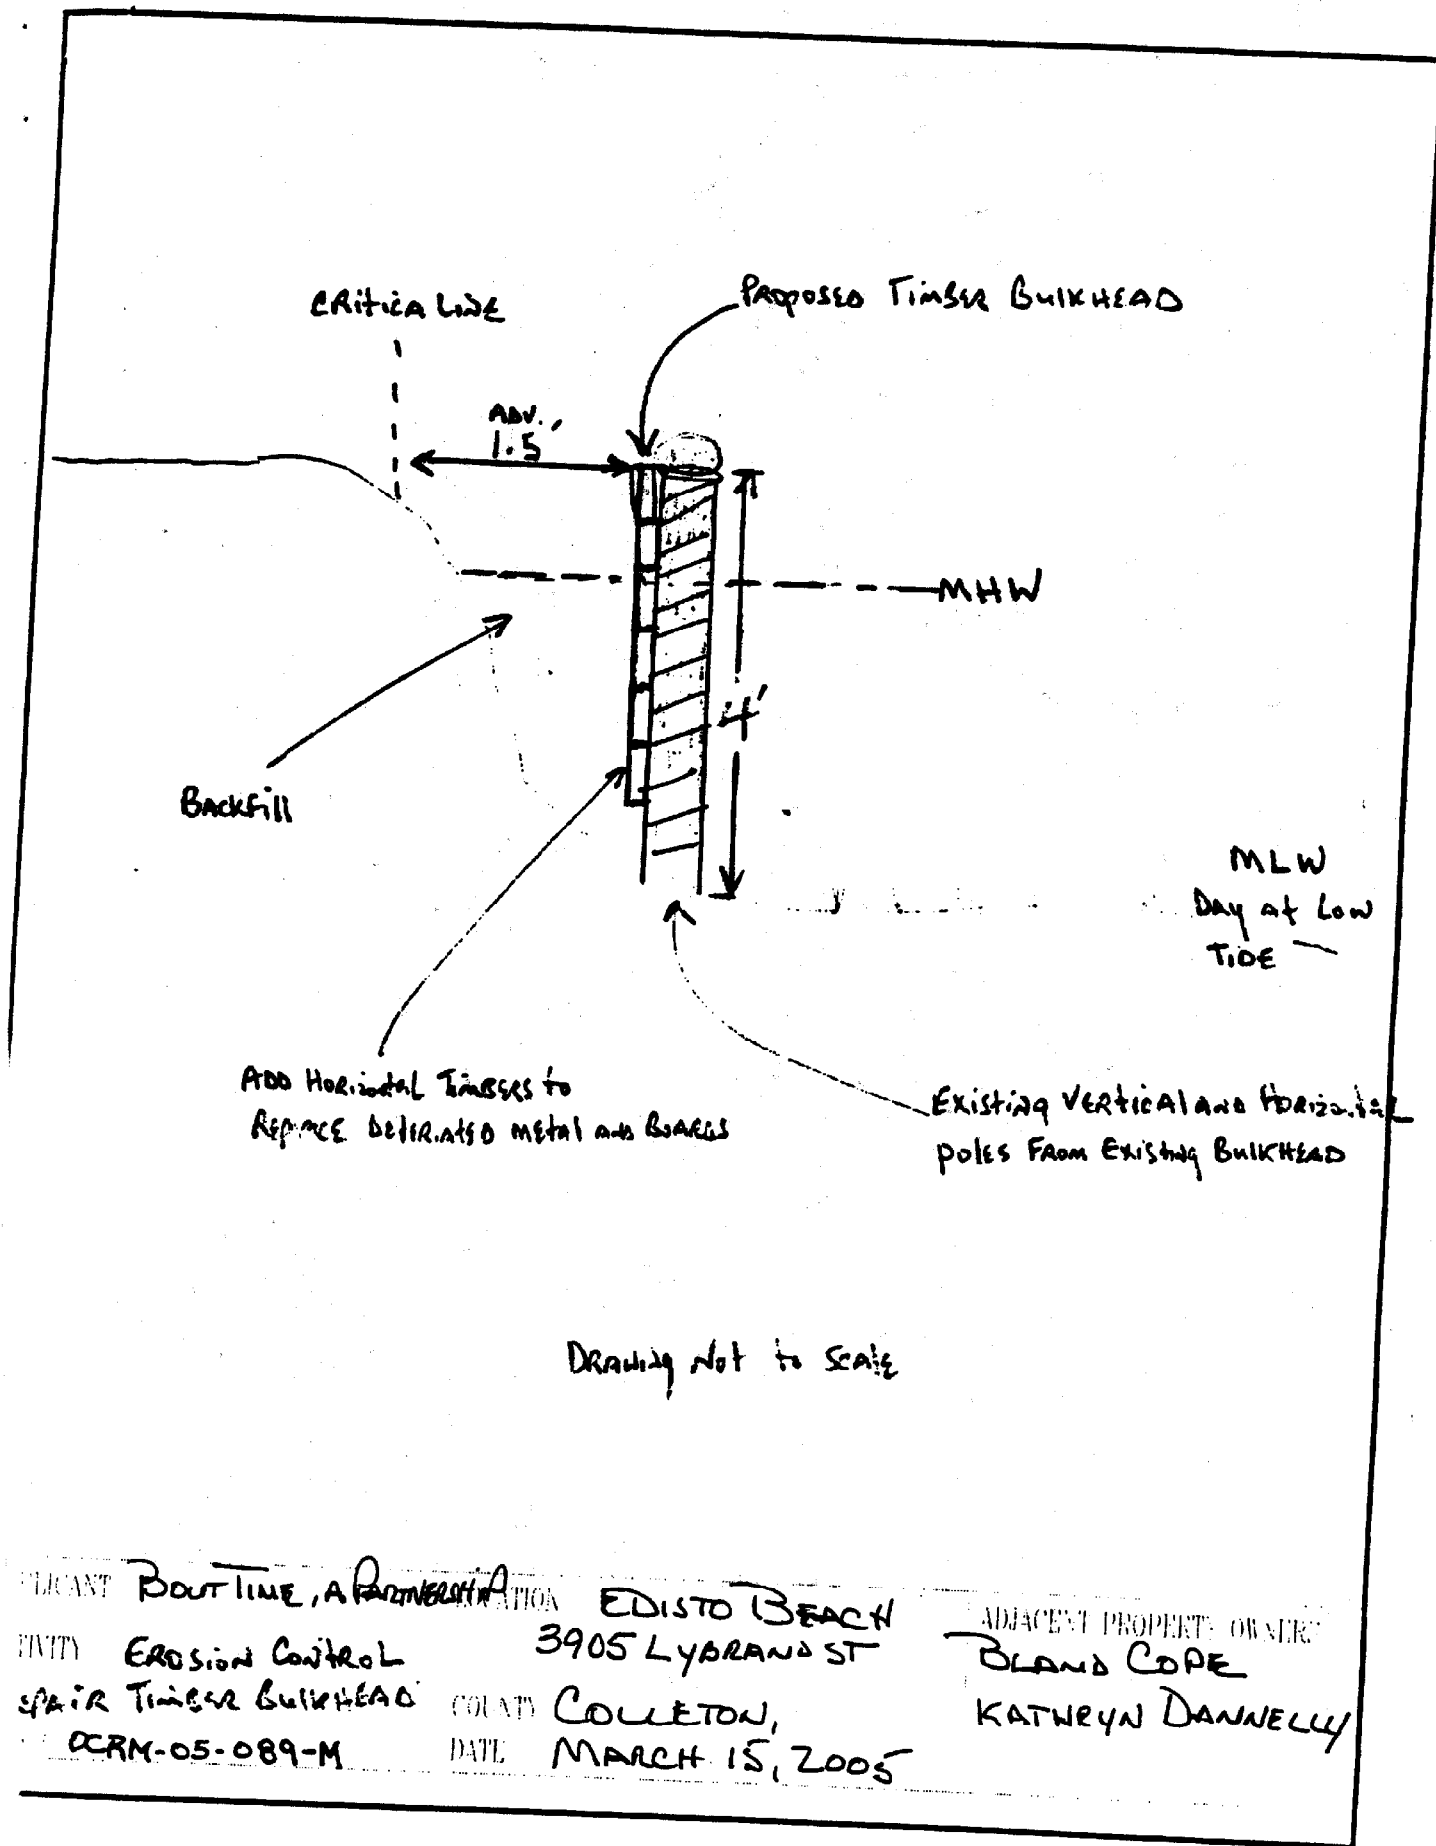 CRitica LiNE
PROPOSED TiMBER BulKHEAD
ADV.
1.5'
MHW
4'
BACKFill
MLW
DAy at Low
TiDE
ADD HORizontal TimBERS to
REPlACE DEteriAtED mEtAl AnD BoARDS
Existing VERticAl AND HORizontal
polES FROM Existing BulKHEAD
DRAWing Not to SCAlE
PLICANT BOUT TIME, A PARTNERSHIP
TIVITY EROSION CONTROL
EPAiR TimBER BulKHEAD
OCRM-05-089-M
ATION EDISTO BEACH
3905 LYBRAND ST
COUNTY COLLETON,
DATE MARCH 15, 2005
ADJACENT PROPERTY OWNERS
BLAND COPE
KATHRYN DANNELLY